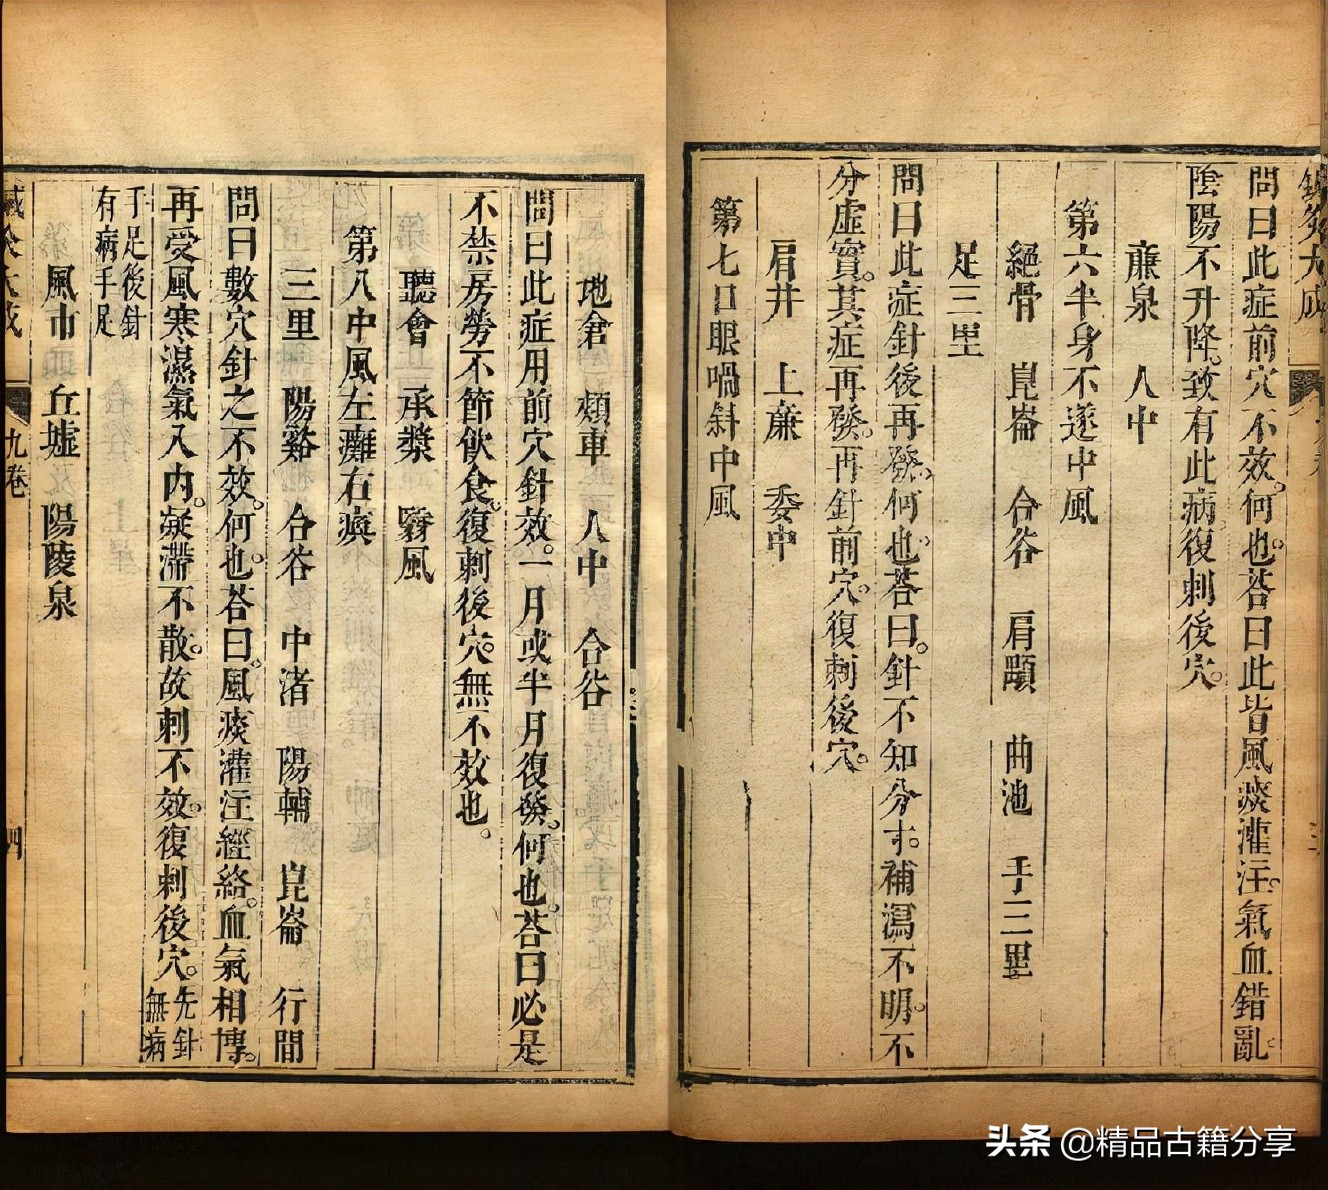 問曰此症前穴不效何也荅曰此皆風痰灌注氣血錯亂
陰陽不升降致有此病復刺後穴
廉泉 人中
第六半身不遂中風
絕骨 崑崙 合谷 肩顒 曲池 手三里
足三里
問曰此症針後再發何也荅曰針不知分寸補瀉不明不
分虛實其症再發再針前穴復刺後穴
肩井 上廉 委中
第七口眼喎斜中風
地倉 頰車 人中 合谷
問曰此症用前穴針效一月或半月復發何也荅曰必是
不禁房勞不節飲食復刺後穴無不效也
聽會 承漿 翳風
第八中風左癱右瘓
三里 陽谿 合谷 中渚 陽輔 崑崙 行間
問曰數穴針之不效何也荅曰風痰灌注經絡血氣相博
再受風寒濕氣入內凝滯不散故刺不效復刺後穴先針無病
手足後針有病手足
風市 丘墟 陽陵泉
九卷
四
头条 @精品古籍分享